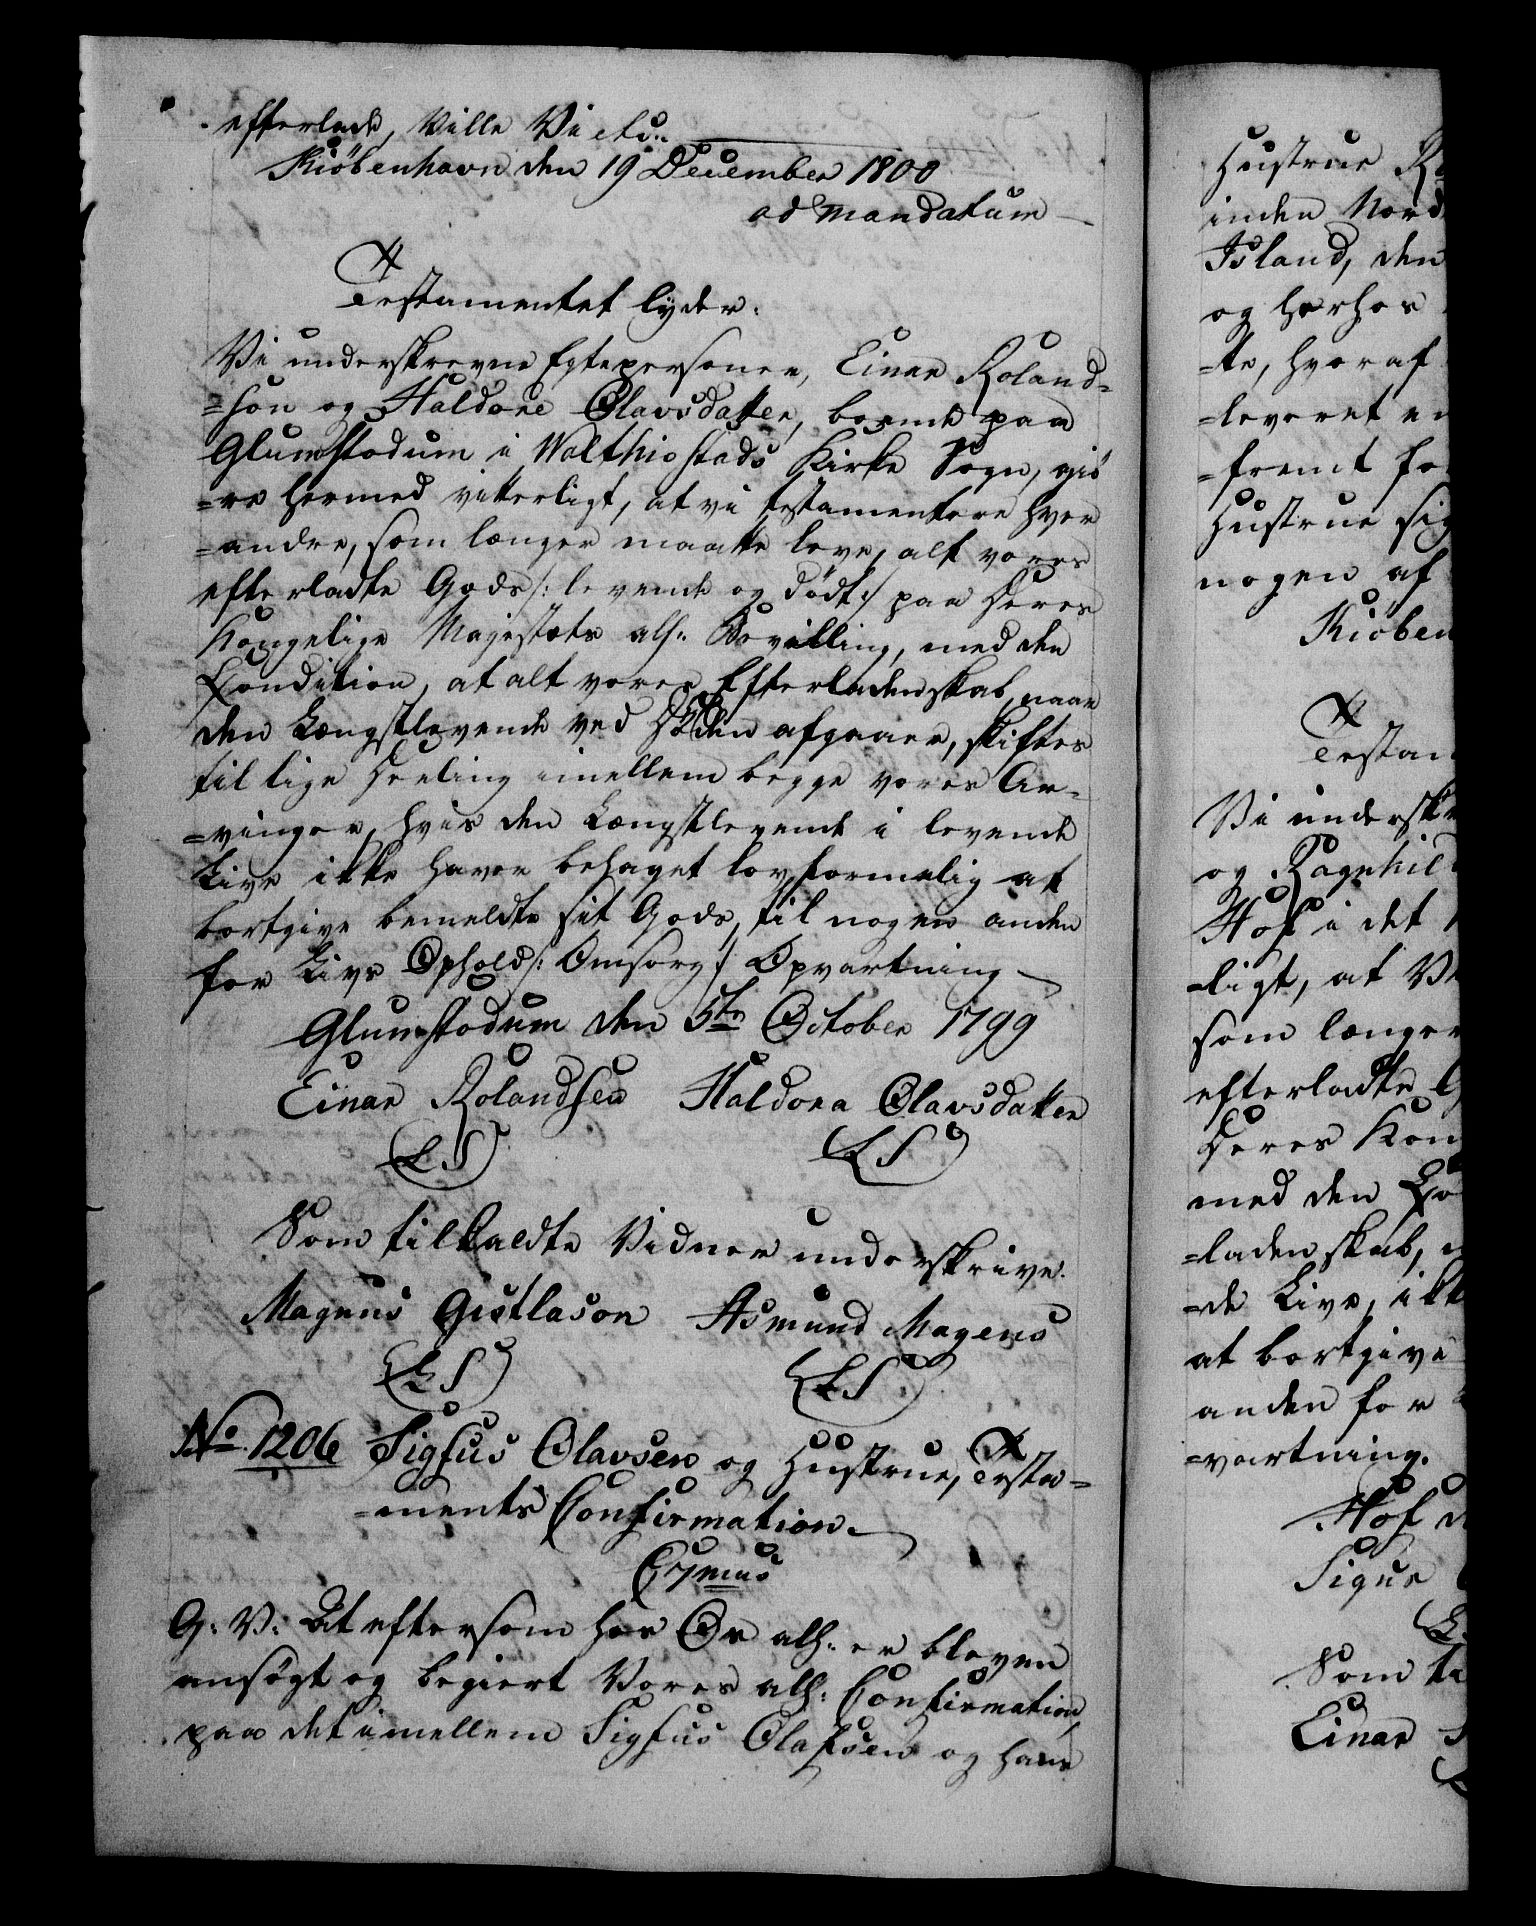 efterlade, Ville Vi etc:
Kiöbenhavn den 19 December 1800
ad mandatum
Testamentet lyder.
Vi underskrevne Egtepersoner, Einar Roland=
=son og Haldore Olavsdatter, boende paa
Glumstodum i Walthiofstads Kirke Sogn, giö
=re hermed vitterligt, at vi testamentere hver
=andre, som længer maatte leve, alt vores
efterladte Gods /: levende og dödt :/ paa Deres
Kongelige Majestæts allh: Bevilling, med den
Condition, at alt vores Efterladenskab, naar
den Længstlevende ved Döden afgaaer, skiftes
til lige Deeling imellem begge vores Ar=
=vinger, hvis den Længstlevende i levende
Live ikke haver behaget lovformelig at
bortgive bemeldte sit Gods, til nogen anden
for Livs Ophold /: Omsorg :/ Opvartning
Glumstodum den 5te October 1799
Einar Rolandsen Haldora Olavsdatter
LS LS
Som tilkaldte Vidner underskrive.
Magnus Gistlason Asmund Magens
LS LS
No 1206 Sigfus Olavsen og Hustrue, Testa=
=ments Confirmation.
G: V: At eftersom hos Os allh: er bleven
ansögt og begiert Vores allh: Confirmation,
paa det imellem Sigfus Olafsen og hans
Hustrue
inden Nord
Island, den
og herhos
=te, hvoraf
=leveret en
=fremt for
Hustrue Sig
nogen af
Kiöben
Testam
Vi underskr
og Ragnhild
Hof i det
=ligt, at Vi
som længer
efterladte G
Deres Kon
med den Co
=ladenskab, n
=de Live, ikk
at bortgive
anden for
=vartning.
Hof d
Sigur
Som ti
Einar